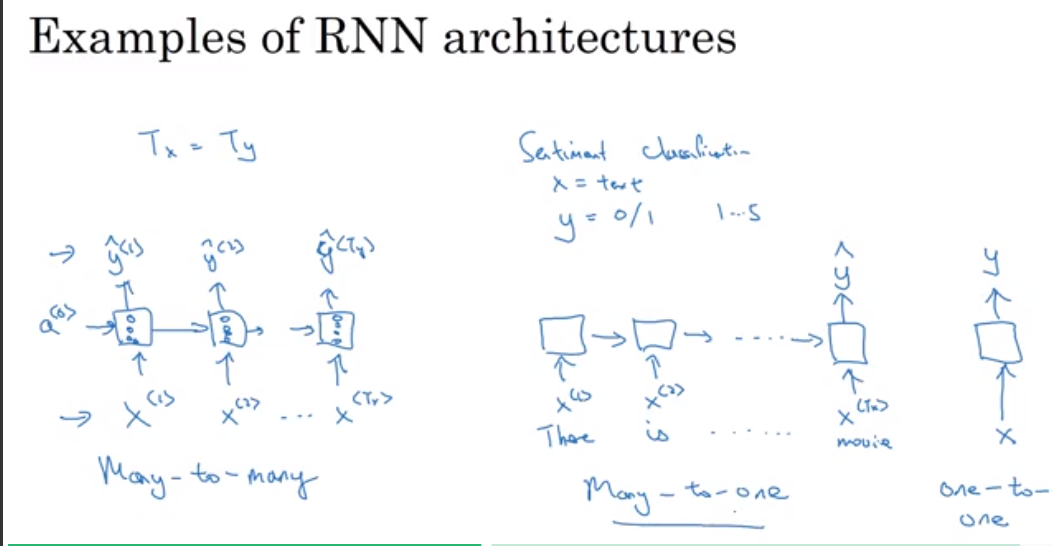 Examples of RNN architectures
Tx = Ty
ŷ<1> ŷ<2> ŷ<Ty>
a<0>
x<1> x<2> ... x<Tx>
Many-to-many
Sentiment classification
x = text
y = 0/1 1...5
ŷ
.....
x<1> x<2> x<Tx>
There is ...... movie
Many-to-one
y
x
one-to-
one